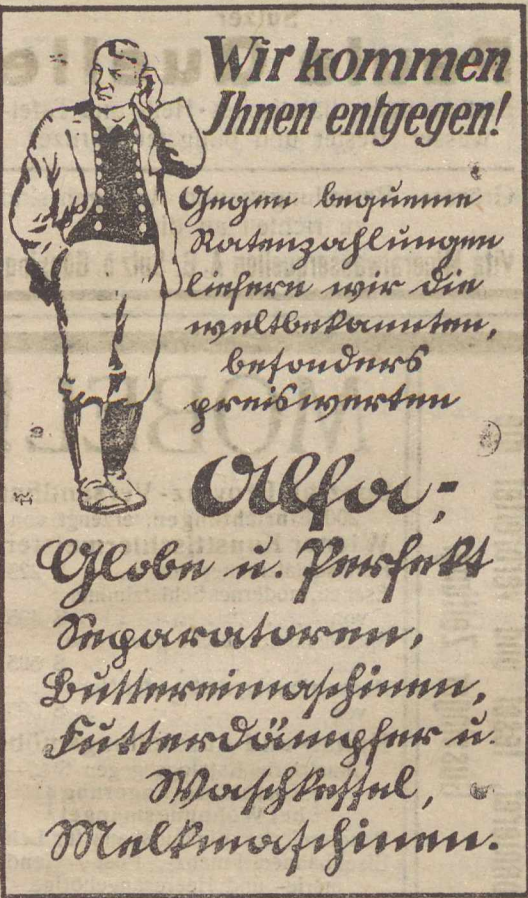 Wir kommen
Ihnen entgegen!
Gegen bequeme
Ratenzahlungen
liefern wir die
weltbekannten,
besonders
preiswerten
Alfa-
Globe u. Perfekt
Separatoren,
Buttereimaschinen,
Futterdämpfer u.
Waschkessel,
Melkmaschinen.